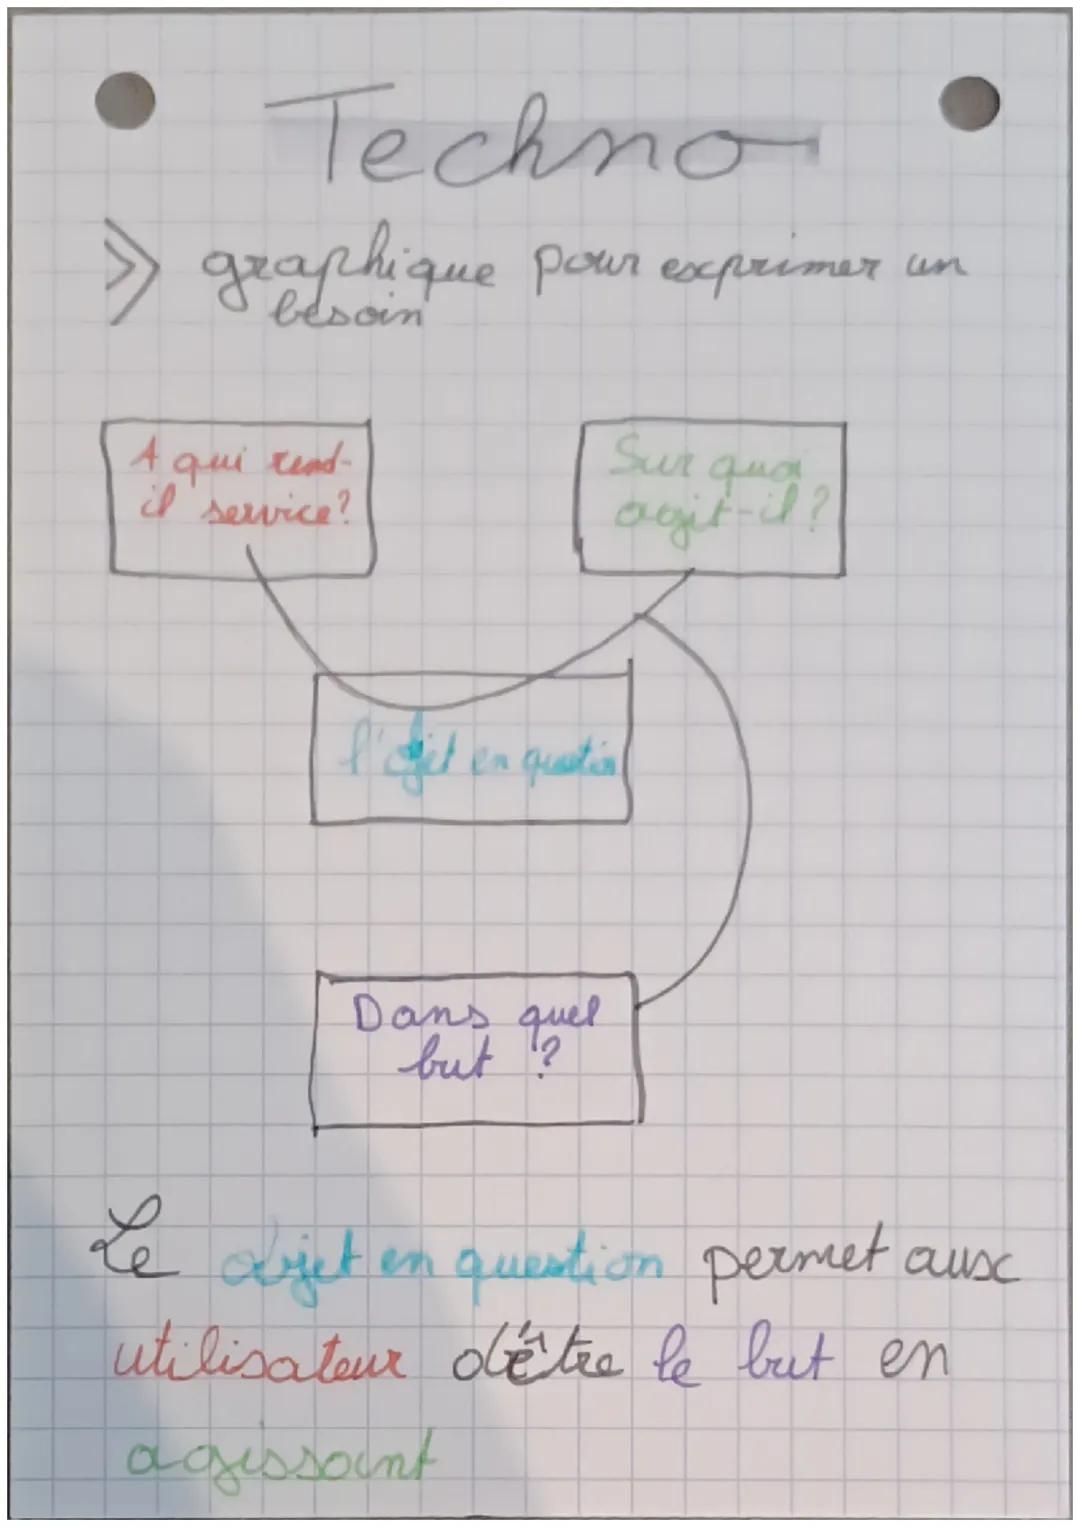 Techno
>> graphique pour exprimer un
besoin
A qui rend-
il service?
Sur quoi
agit-il ?
l'objet en question
Dans quel
but ?
Le objet en question permet aux
utilisateur d'être le but en
agissant